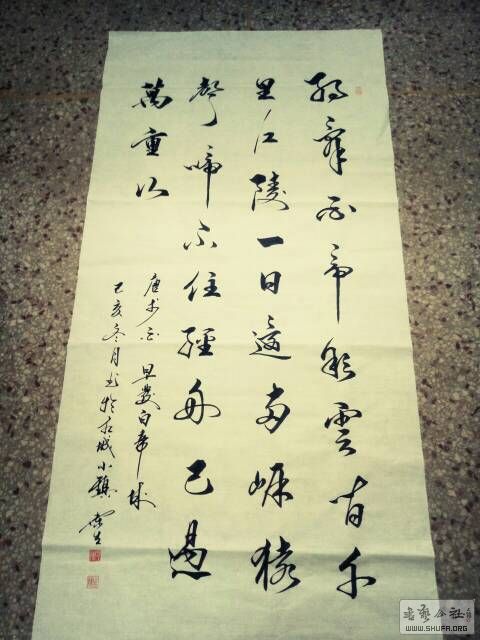 朝辞白帝彩雲间千
里江陵一日還两岸猿
聲啼不住轻舟已過
萬重山
唐李白 早發白帝城
己亥冬月书於水城小鎮
书艺公社
WWW.SHUFA.ORG